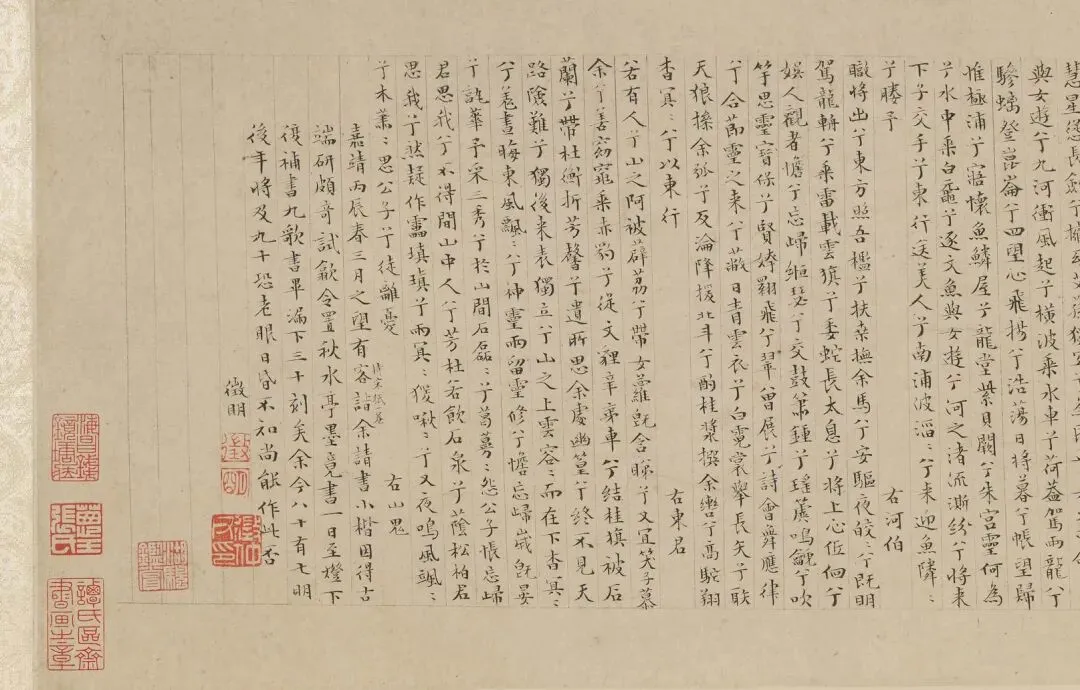 與女遊兮九河衝風起兮橫波乘水車兮荷蓋駕兩龍兮
驂螭登崑崙兮四望心飛揚兮浩蕩日將暮兮悵望歸
惟極浦兮寤懷魚鱗屋兮龍堂紫貝闕兮朱宮靈何為
兮水中乘白黿兮逐文魚與女遊兮河之渚流澌紛兮將來
下子交手兮東行送美人兮南浦波滔:兮來迎魚隣:
兮媵予
右河伯
暾將出兮東方照吾檻兮扶桑撫余馬兮安驅夜皎:兮既明
駕龍輈兮乘雷載雲旗兮委蛇長太息兮將上心低佪兮
娛人觀者憺兮忘歸緪瑟兮交鼓簫鍾兮瑤虡鳴龥兮吹
竽思靈保兮賢姱翾飛兮翠曾展兮詩會舞應律
兮合節靈之來兮蔽日青雲衣兮白霓裳舉長矢兮
天狼操余弧兮反淪降援北斗兮酌桂漿撰余轡兮高駝翔
杳冥:兮以東行
右東君
若有人兮山之阿被薜荔兮帶女蘿既含睇兮又宜笑子慕
余兮善窈窕乘赤豹兮從文貍辛夷車兮結桂旗被石
蘭兮帶杜衡折芳馨兮遺所思余處幽篁兮終不見天
路險難兮獨後來表獨立兮山之上雲容:而在下杳冥:
兮羌晝晦東風飄:兮神靈雨留靈修兮憺忘歸歲既晏
兮孰華予采三秀兮於山間石磊:兮葛蔓:怨公子悵忘歸
君思我兮不得間山中人兮芳杜若飲石泉兮蔭松柏君
思我兮然疑作靁填填兮雨冥:猨啾:兮又夜鳴風颯:
兮木蕭:思公子兮徒離憂
右山鬼
嘉靖丙辰春三月之望有客詣余請書小楷因得古
端研頗奇試歙令置秋水亭墨竟書一日至燈下
復補書九歌書畢漏下三十刻矣余今八十有七明
後年將及九十恐老眼日昏不知尚能作此否
徵明